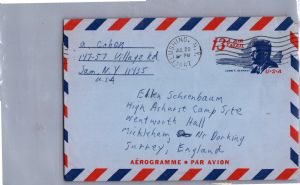 a. Cohen
147-57 Village Rd
Jam. N.Y 11435
USA
FLUSHING, N.Y.
PM
1967
13c
U·S·A
JOHN F. KENNEDY
Ellen Scherbaum
High Ashurst Camp Site
Wentworth Hall
Mickleham Nr Dorking
Surrey, England
AÉROGRAMME • PAR AVION